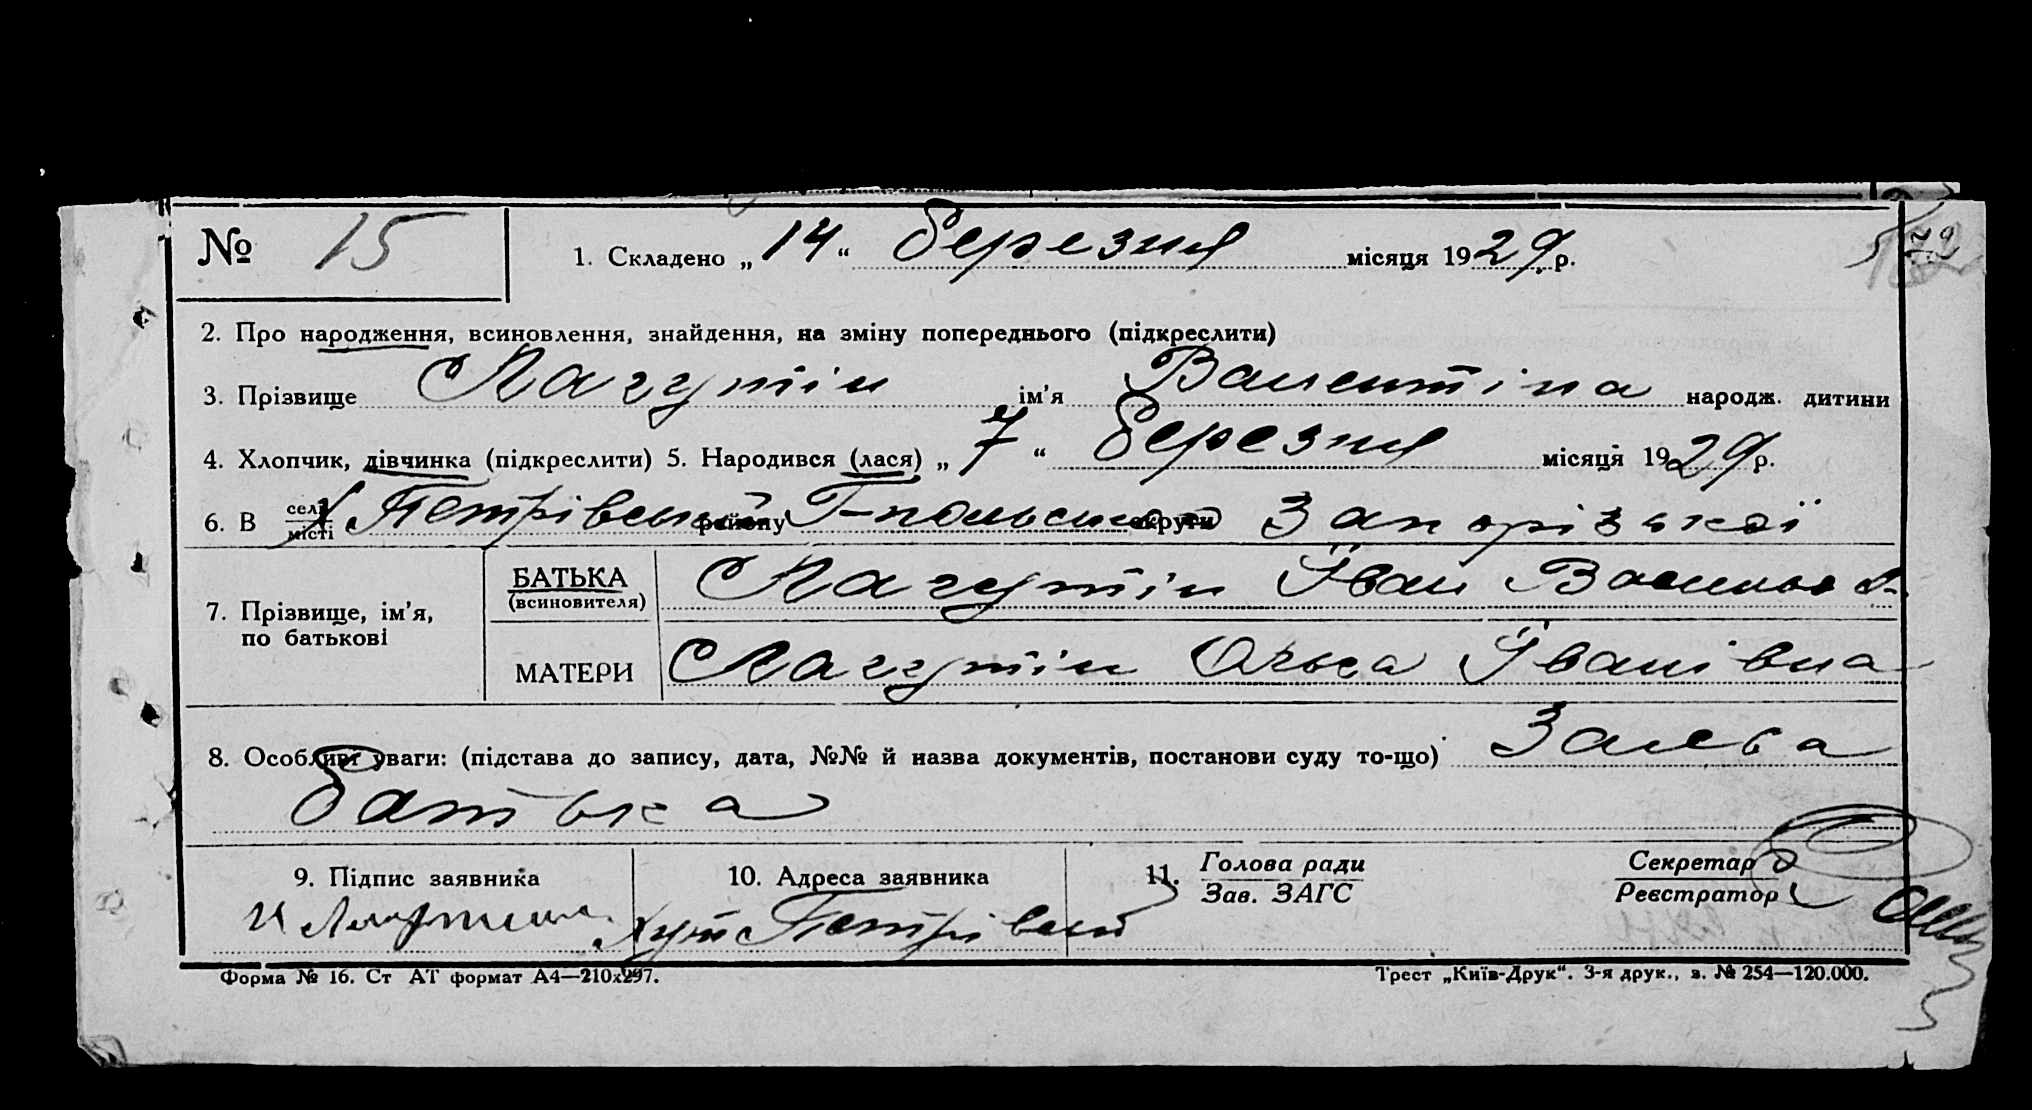 № 15
1. Складено „14“ березня місяця 1929 р.
2. Про народження, всиновлення, знайдення, на зміну попереднього (підкреслити)
3. Прізвище Лагутін ім'я Валентіна народж. дитини
4. Хлопчик, дівчинка (підкреслити) 5. Народився (лася) „7“ березня місяця 1929 р.
6. В селі місті х. Петрівський району Г-польського округи Запорізької
7. Прізвище, ім'я, по батькові
БАТЬКА (всиновителя) Лагутін Іван
МАТЕРИ Лагутін Ольга Іванівна
8. Особливі уваги: (підстава до запису, дата, №№ й назва документів, постанови суду то-що) Заява
батька
9. Підпис заявника
10. Адреса заявника
11. Голова ради
Зав. ЗАГС
Секретар
Реєстратор
Хут Петрівськ
Форма № 16. Ст АТ формат А4—210х297.
Трест „Київ-Друк“. 3-я друк., з. № 254—120.000.